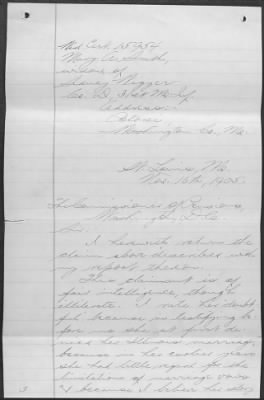 Wid. Cert. 15
Mary A. Smith,
widow of
Co. D, 31st Mo. Inf.
Address:
Washington Co., Mo.
St. Louis, Mo.
Nov. 16th, 1905.
The Commissioner of Pensions,
Washington, D.C.
Sir:
I herewith return the
claim above described with
my report thereon.
This claimant is of
fair intelligence, though
illiterate. I rate her doubt-
ful because in testifying be-
fore me she at first de-
nied her Illinois marriage,
because in her earlier years
she had little regard for the
limitations of marriage vows
& because I believe her